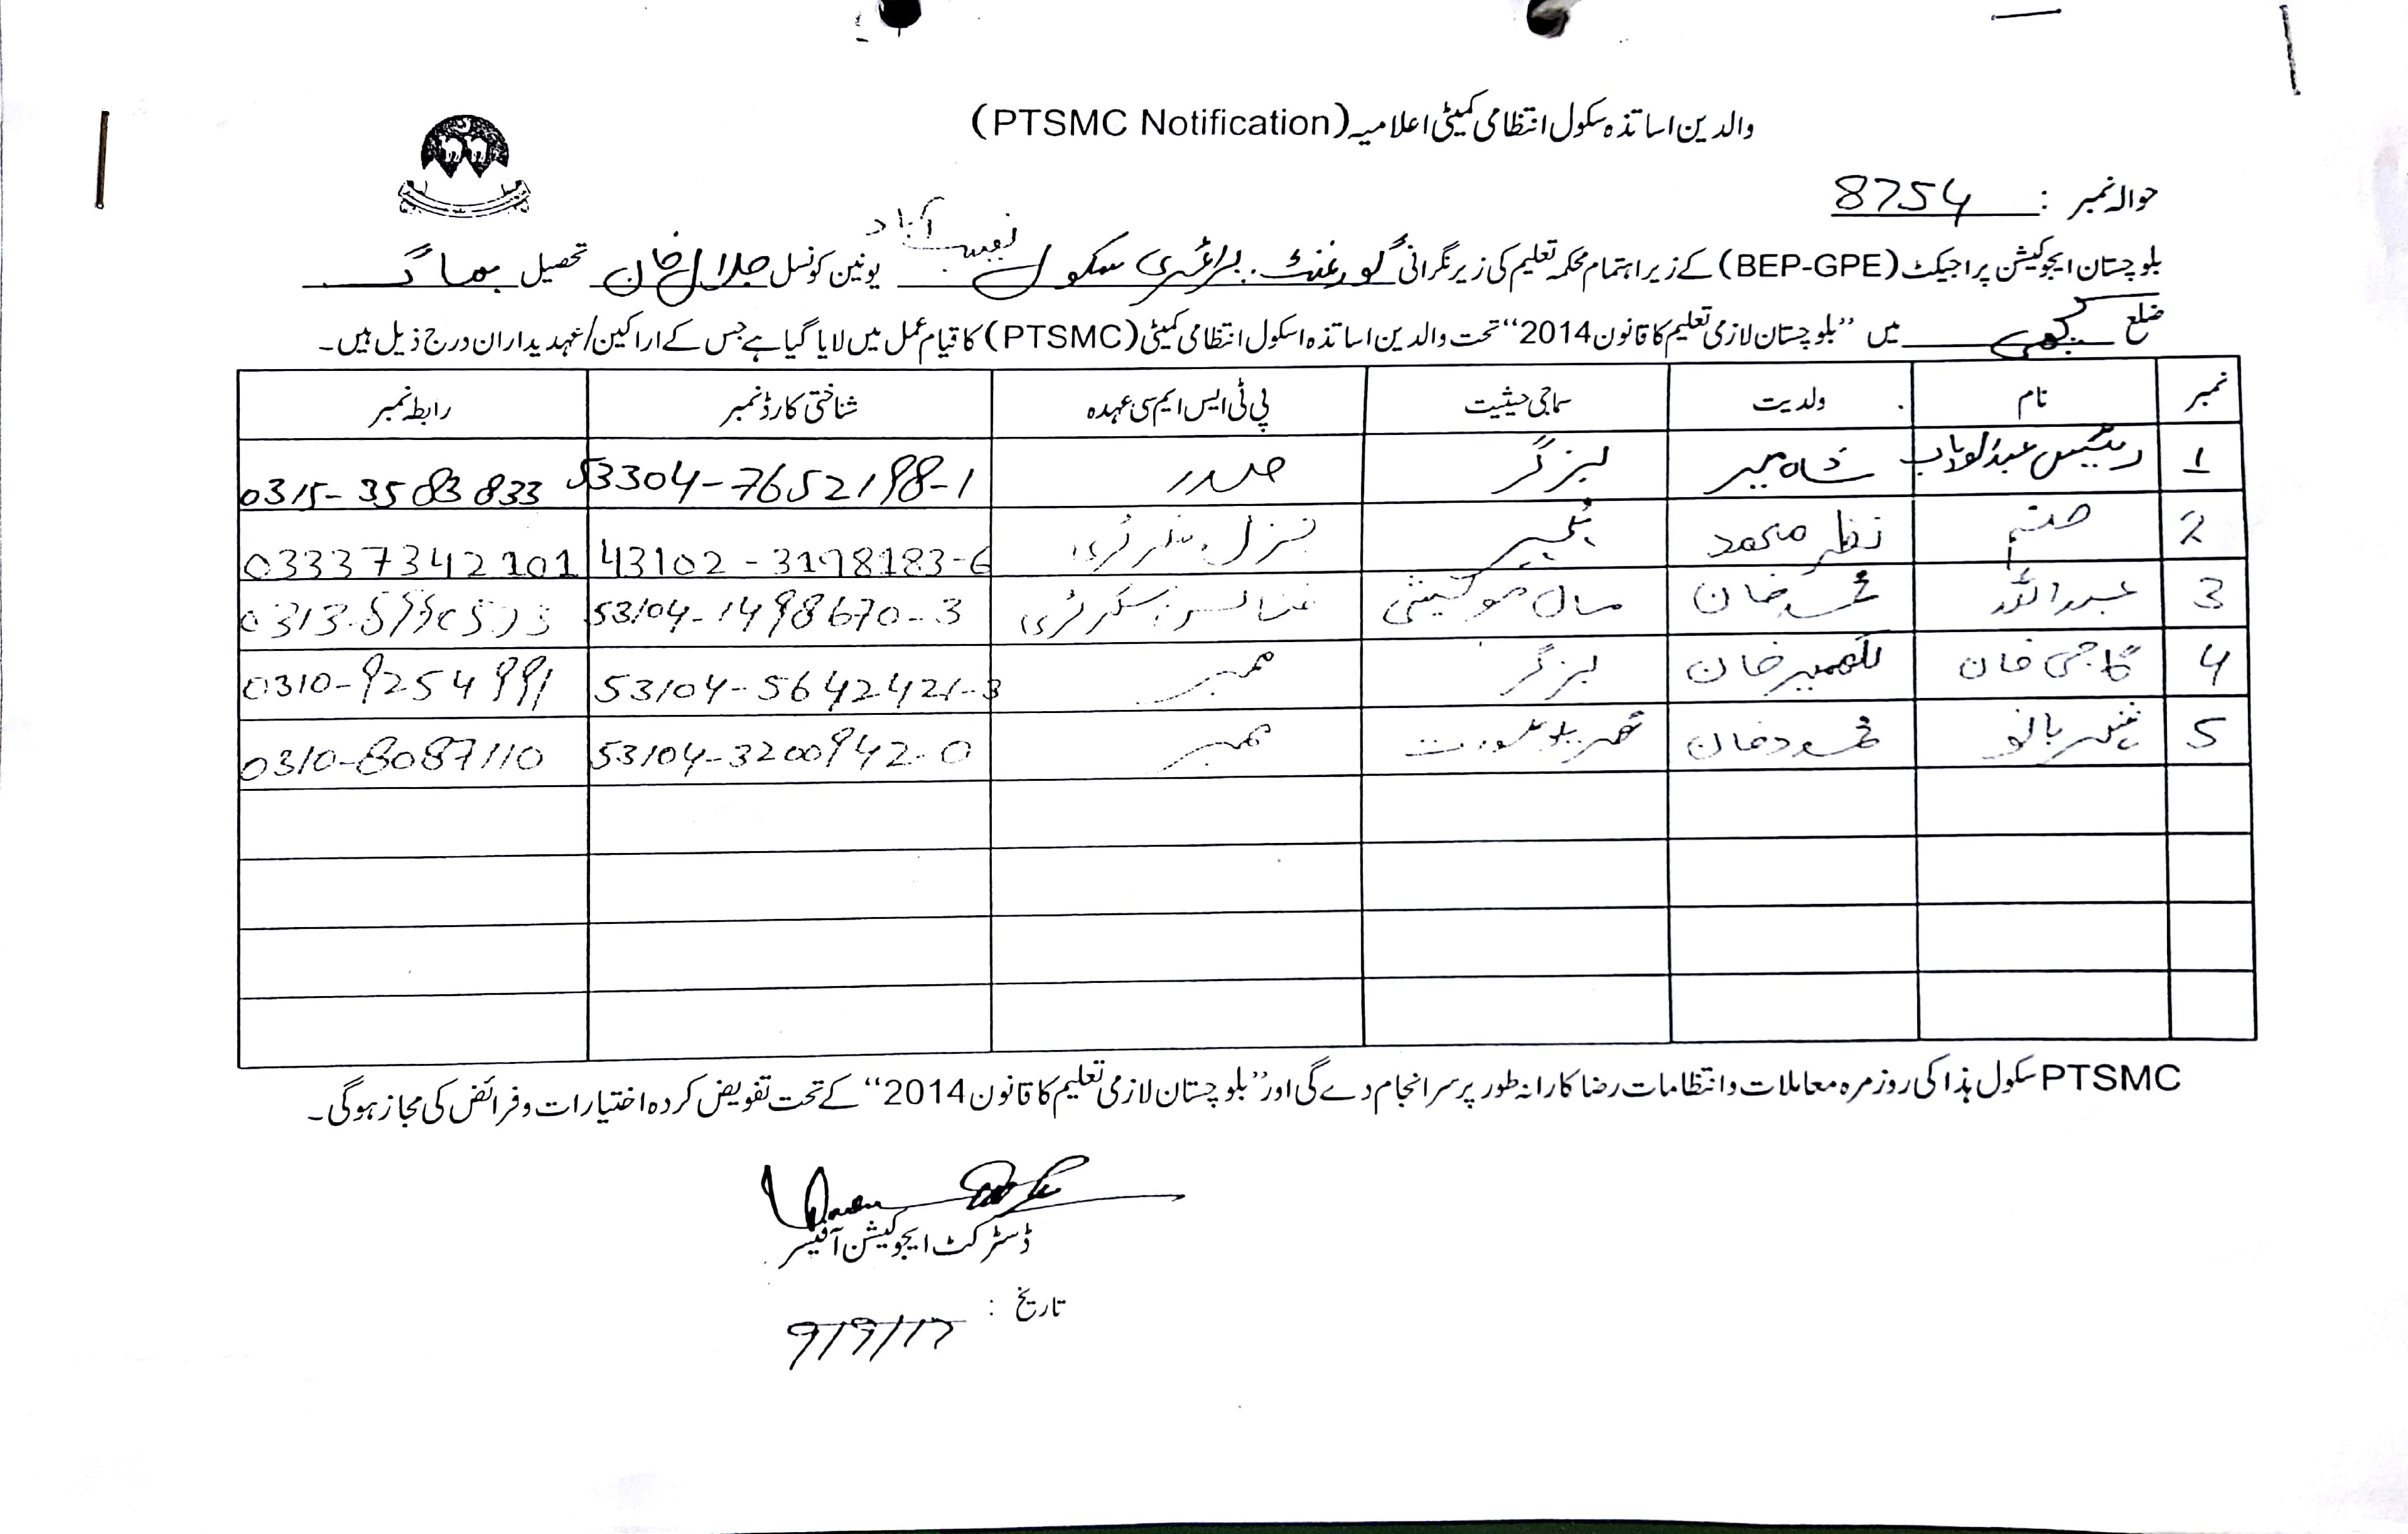 والدین اساتذہ سکول انتظامی کمیٹی اعلامیہ (PTSMC Notification)
حوالہ نمبر : 8754
بلوچستان ایجوکیشن پراجیکٹ (BEP-GPE) کے زیر اہتمام محکمہ تعلیم کی زیر نگرانی گورنمنٹ پرائمری سکول آباد یونین کونسل جلال خان تحصیل بھاگ
ضلع کچھی میں "بلوچستان لازمی تعلیم کا قانون 2014" تحت والدین اساتذہ اسکول انتظامی کمیٹی (PTSMC) کا قیام عمل میں لایا گیا ہے جس کے اراکین/عہدیداران درج ذیل ہیں۔
نمبر نام ولدیت سماجی حیثیت پی ٹی ایس ایم سی عہدہ شناختی کارڈ نمبر رابطہ نمبر
1 رئیس عبدالوہاب شاہ میر بزگر صدر 53304-7652198-1 0315-3583833
2 صنم نظر محمد ٹیچر جنرل سکرٹری 43102-3198183-6 03337342101
3 عبداللہ محمد خان مال مویشی فنانس سکرٹری 53104-1498670-3
4 گاجی خان لکھمیر خان بزگر ممبر 53104-5642421-3 0310-9254991
5 بانو خان گھریلو عورت ممبر 53104-3200942-0 0310-8087110
PTSMC سکول ہذا کی روزمرہ معاملات و انتظامات رضا کارانہ طور پر سرانجام دے گی اور "بلوچستان لازمی تعلیم کا قانون 2014" کے تحت تفویض کردہ اختیارات و فرائض کی مجاز ہوگی۔
ڈسٹرکٹ ایجوکیشن آفیسر
تاریخ : 9/9/17